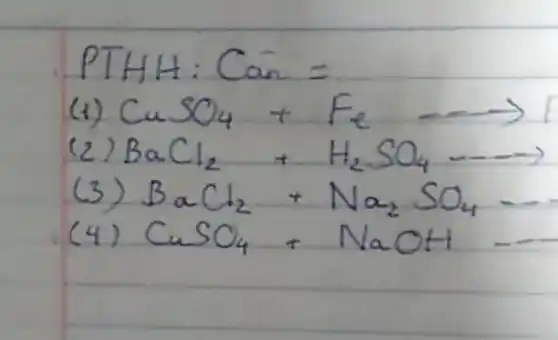 PTHH: Cân =
(1) CuSO₄ + Fe ----> F
(2) BaCl₂ + H₂SO₄ ---->
(3) BaCl₂ + Na₂SO₄ --
(4) CuSO₄ + NaOH ---